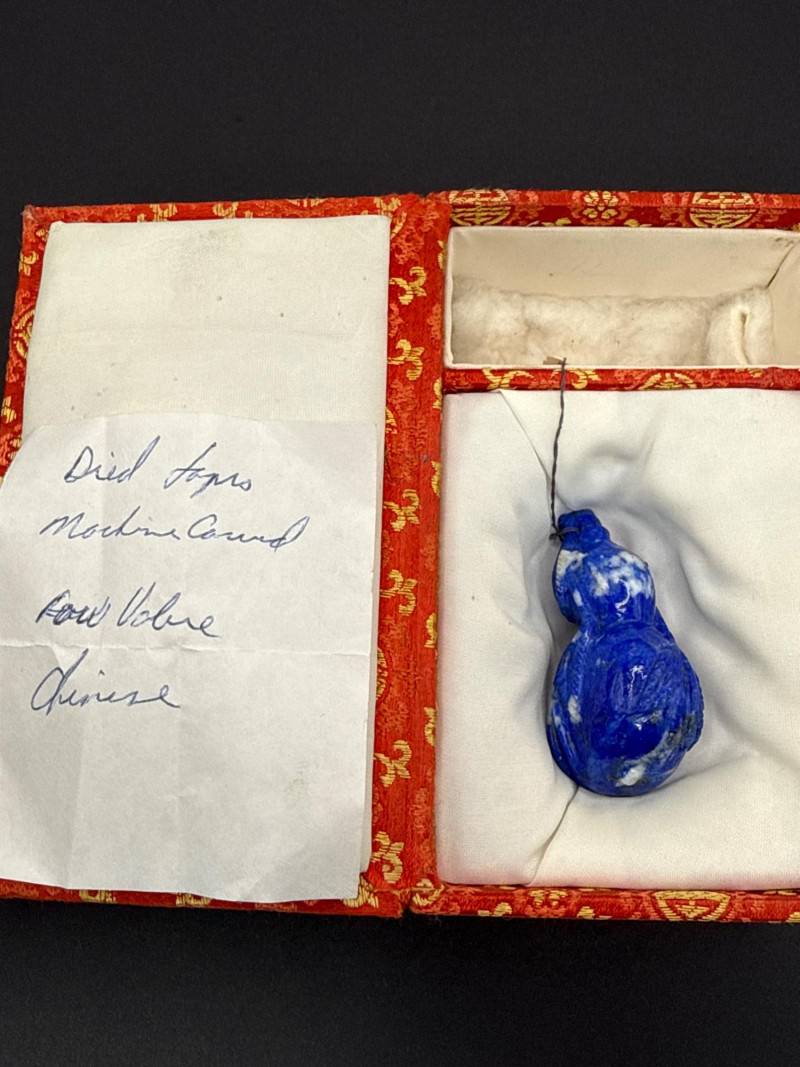 Died Lapis
Machine Carved
Low Value
Chinese